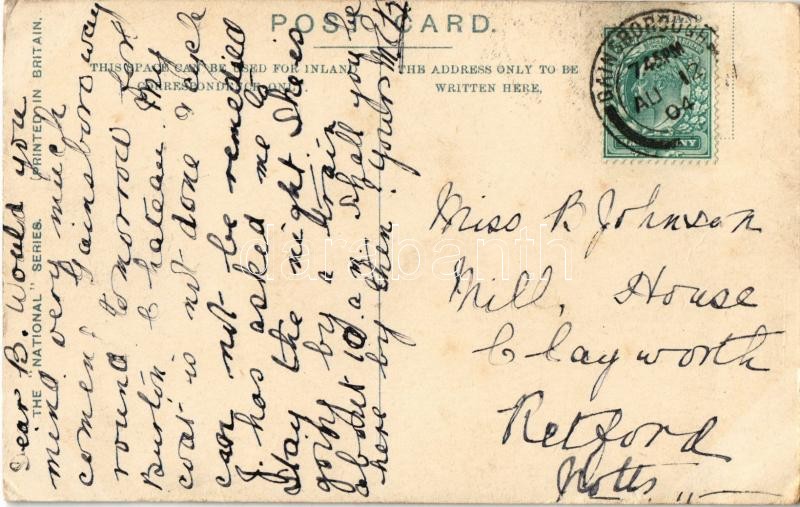 POST CARD.
THIS SPACE CAN BE USED FOR INLAND
CORRESPONDENCE ONLY.
THE ADDRESS ONLY TO BE
WRITTEN HERE,
THE "NATIONAL" SERIES.
PRINTED IN BRITAIN.
GAINSBOROUGH
7.45 PM
AU 12
04
Dear B. Would you
mind very much
comeing Gainsboro way
round tomorrow for
Burton Chateau. Mrs
coat is not done & she
can not be remeined
J. has asked me to
stay the night. She is
going by a train
about 10 a.m. shall you be
here by then. Yours
Miss B Johnson
Mill, House
Clayworth
Retford
Notts
darabanth